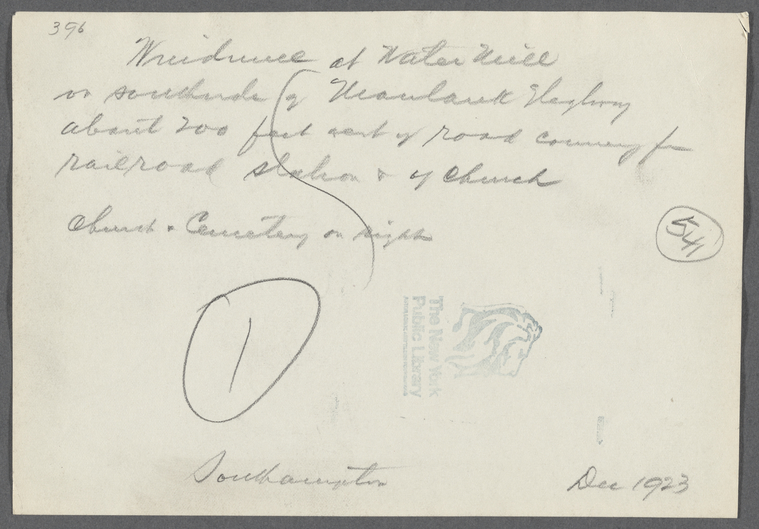 396
Windmill at Water Mill
on southside of Montauk Highway
about 200 feet east of road coming from
railroad station & of church
Church & Cemetery on right
541
1
The New York
Public Library
Southampton
Dec 1923